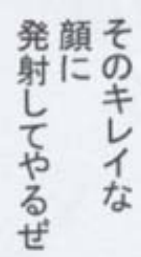 そのキレイな
顔に
発射してやるぜ